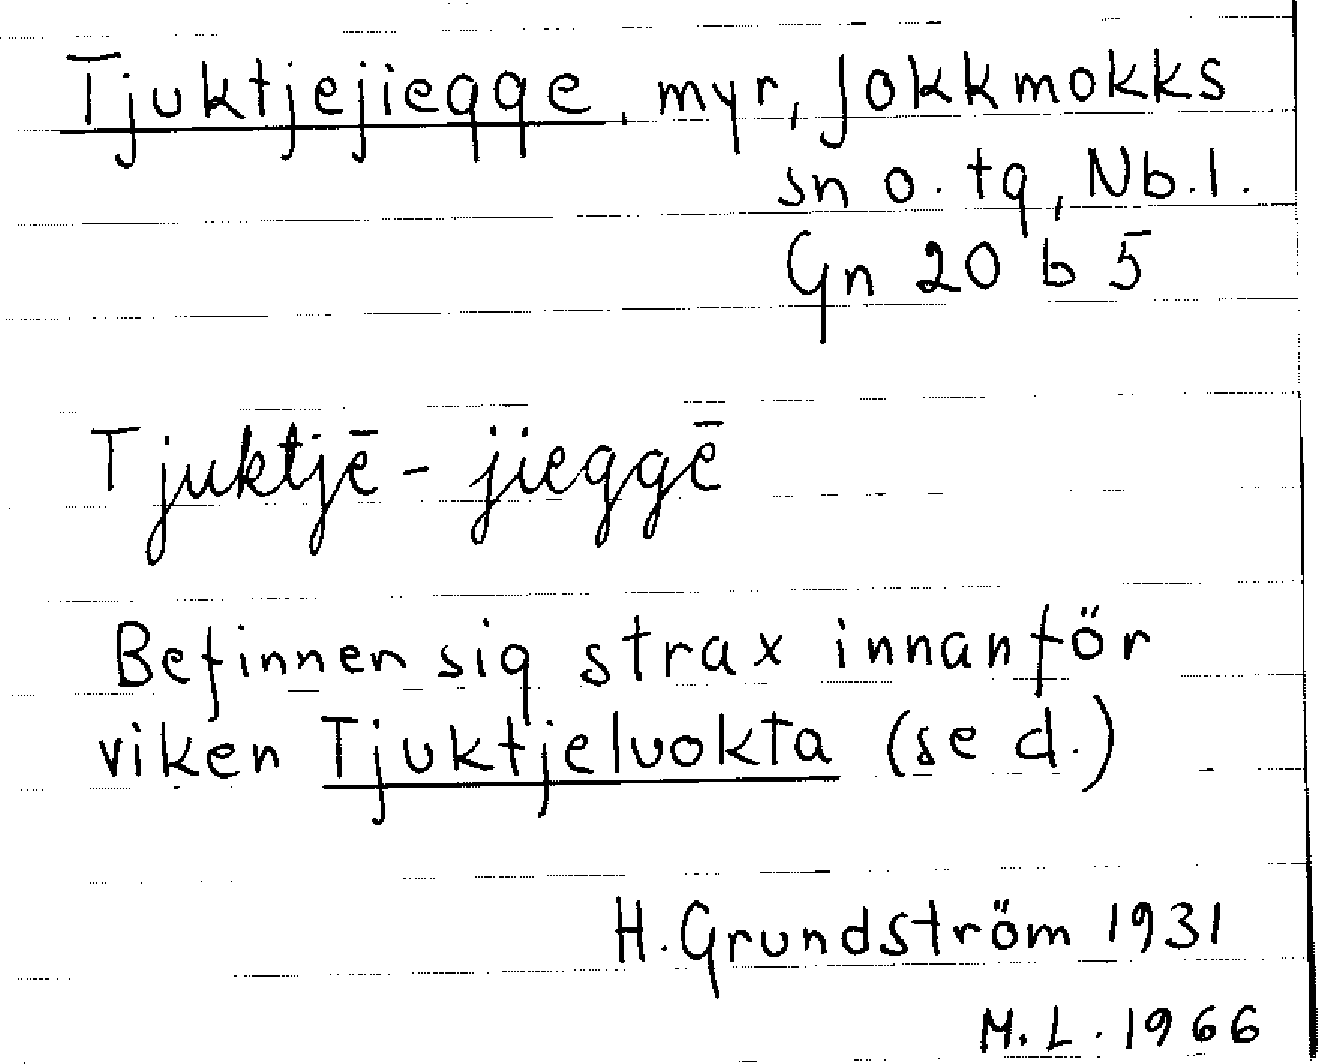 Tjuktjejiegge, myr, Jokkmokks
sn o. tg, Nb.l.
Gn 20 b 5
Tjuktjē-jieggē
Befinner sig strax innanför
viken Tjuktjeluokta (se d.)
H. Grundström 1931
M.L. 1966